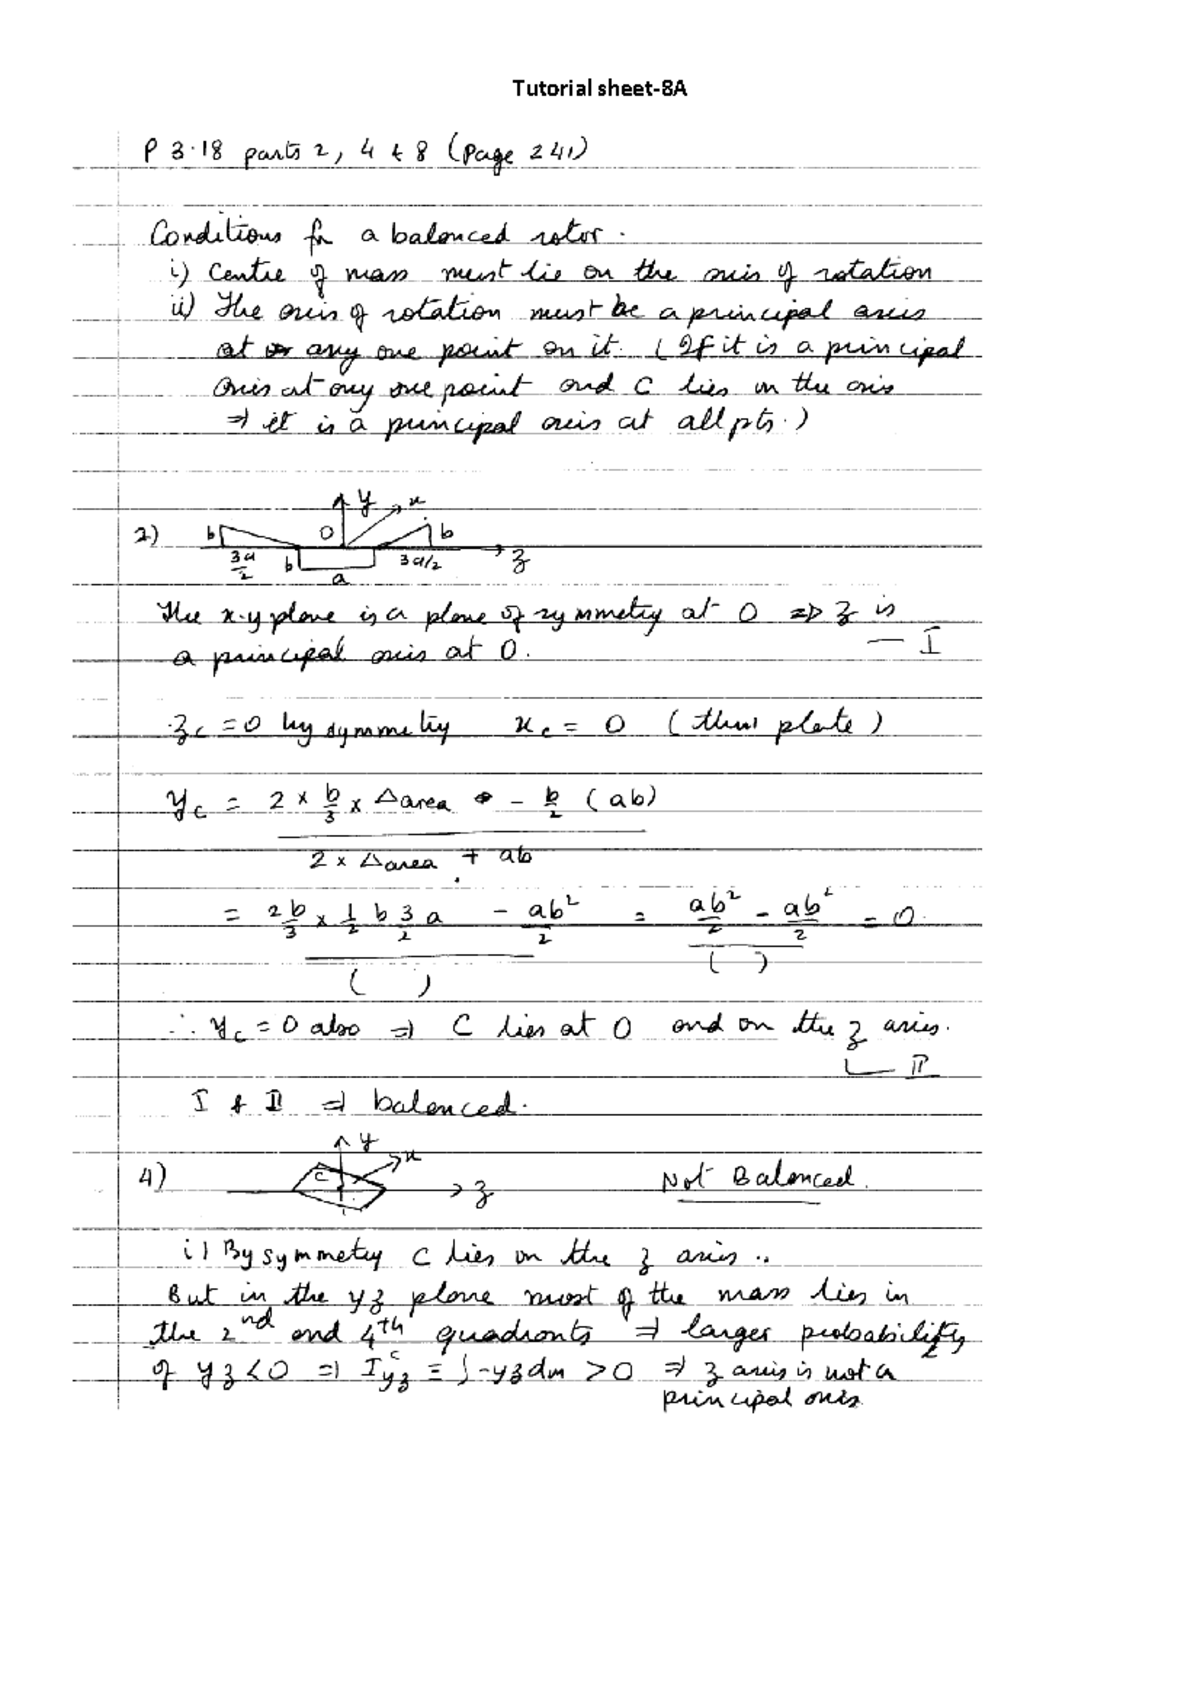 Tutorial sheet-8A
P 3.18 parts 2, 4 & 8 (Page 241)
Conditions for a balanced rotor.
i) Centre of mass must lie on the axis of rotation
ii) The axis of rotation must be a principal axis
at or any one point on it. (If it is a principal
axis at any one point and C lies on the axis
⇒ it is a principal axis at all pts.)
2) b 3a/2 b a O y x 3a/2 b z
The x-y plane is a plane of symmetry at O ⇒ z is
a principal axis at O. — I
z_c = 0 by symmetry x_c = 0 (thin plate)
y_c = 2 × b/3 × △area - b/2 (ab)
2 × △area + ab
= 2b/3 × 1/2 b 3/2 a - ab²/2 = ab²/2 - ab²/2 = 0.
( ) ( )
∴ y_c = 0 also ⇒ C lies at O and on the z axis.
II
I & II ⇒ balanced.
4) C y x z Not Balanced.
i) By symmetry C lies on the z axis..
But in the yz plane most of the mass lies in
the 2nd and 4th quadrants ⇒ larger probability
of yz < 0 ⇒ I^c_yz ≡ ∫-yzdm > 0 ⇒ z axis is not a
principal axis.